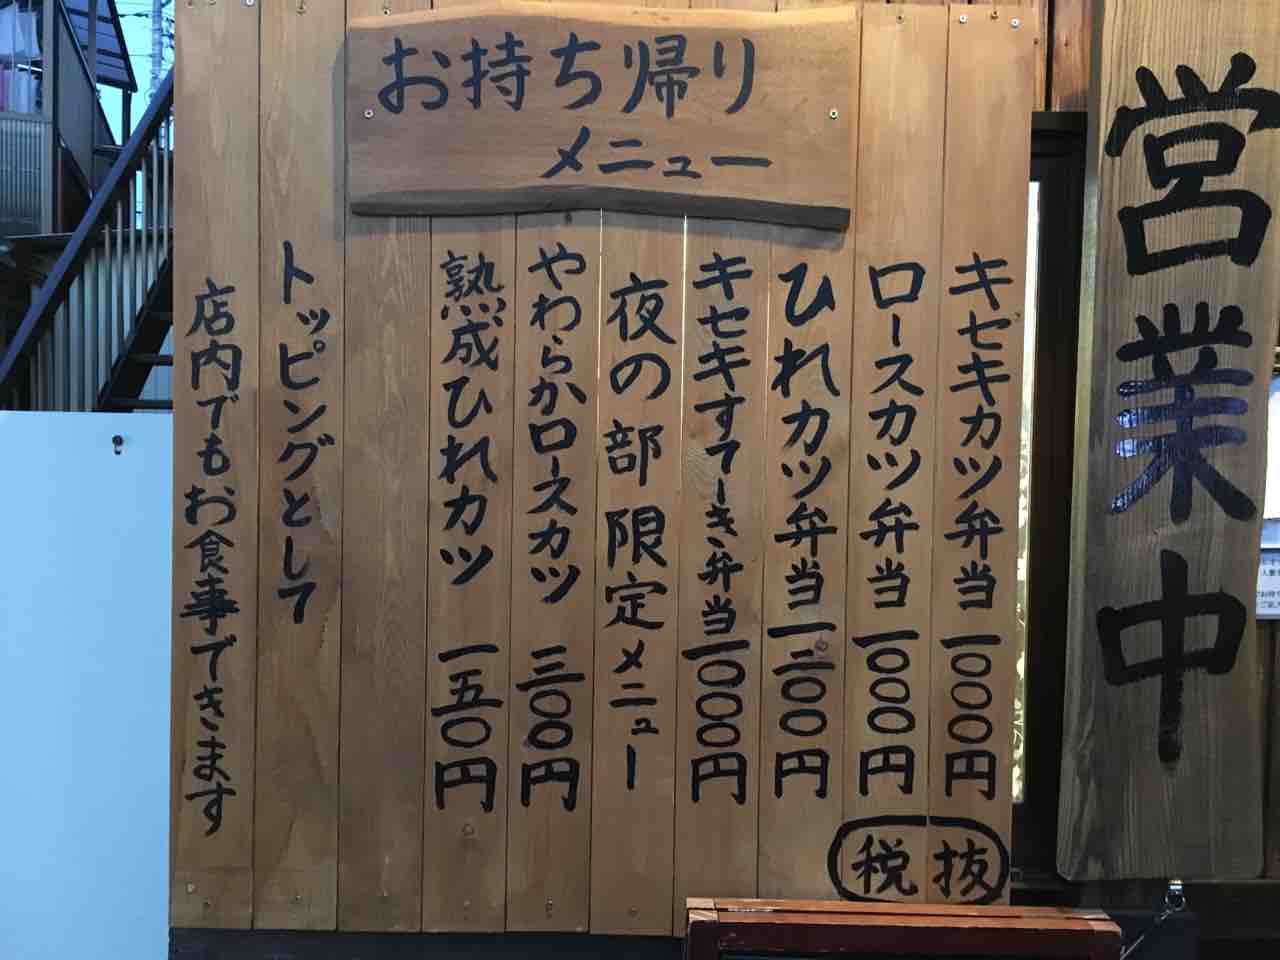 お持ち帰り
メニュー
キセキカツ弁当一〇〇〇円
ロースカツ弁当一〇〇〇円
ひれカツ弁当一二〇〇円
キセキすてーき弁当一〇〇〇円
夜の部限定メニュー
やわらかロースカツ三〇〇円
熟成ひれカツ一五〇円
トッピングとして
店内でもお食事できます
税抜
営業中